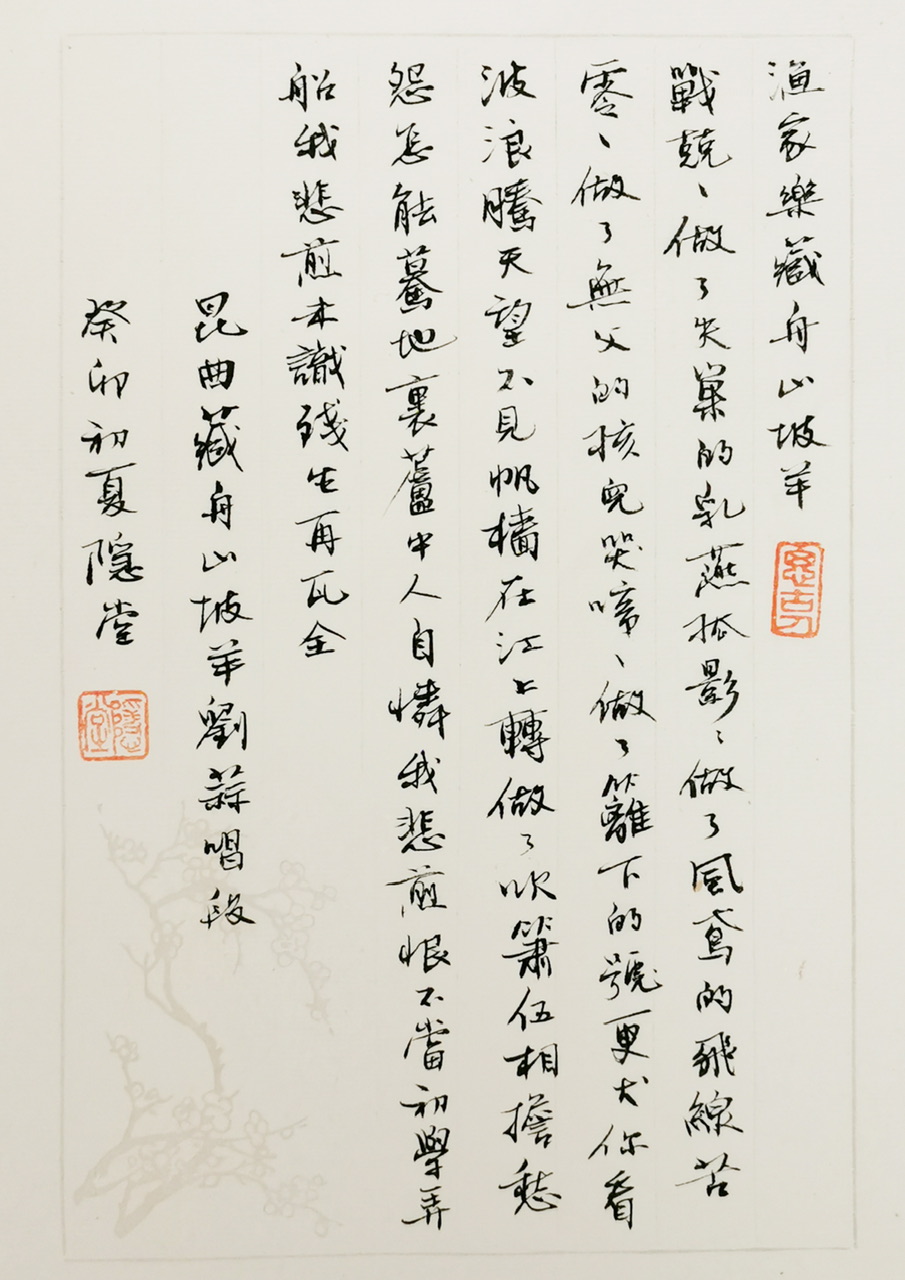 漁家樂藏舟山坡羊
戰兢〻做了失巢的乳燕孤影〻做了風鳶的飛線苦
零〻做了無父的孩兒哭啼〻做了籬下的號更犬你看
波浪騰天望不見帆檣在江上轉做了吹簫伍相擔愁
怨怎能驀地裏蘆中人自憐我悲煎恨不當初學弄
船我悲煎未識殘生再瓦全
昆曲藏舟山坡羊劉蒜唱段
癸卯初夏隱堂
隱堂